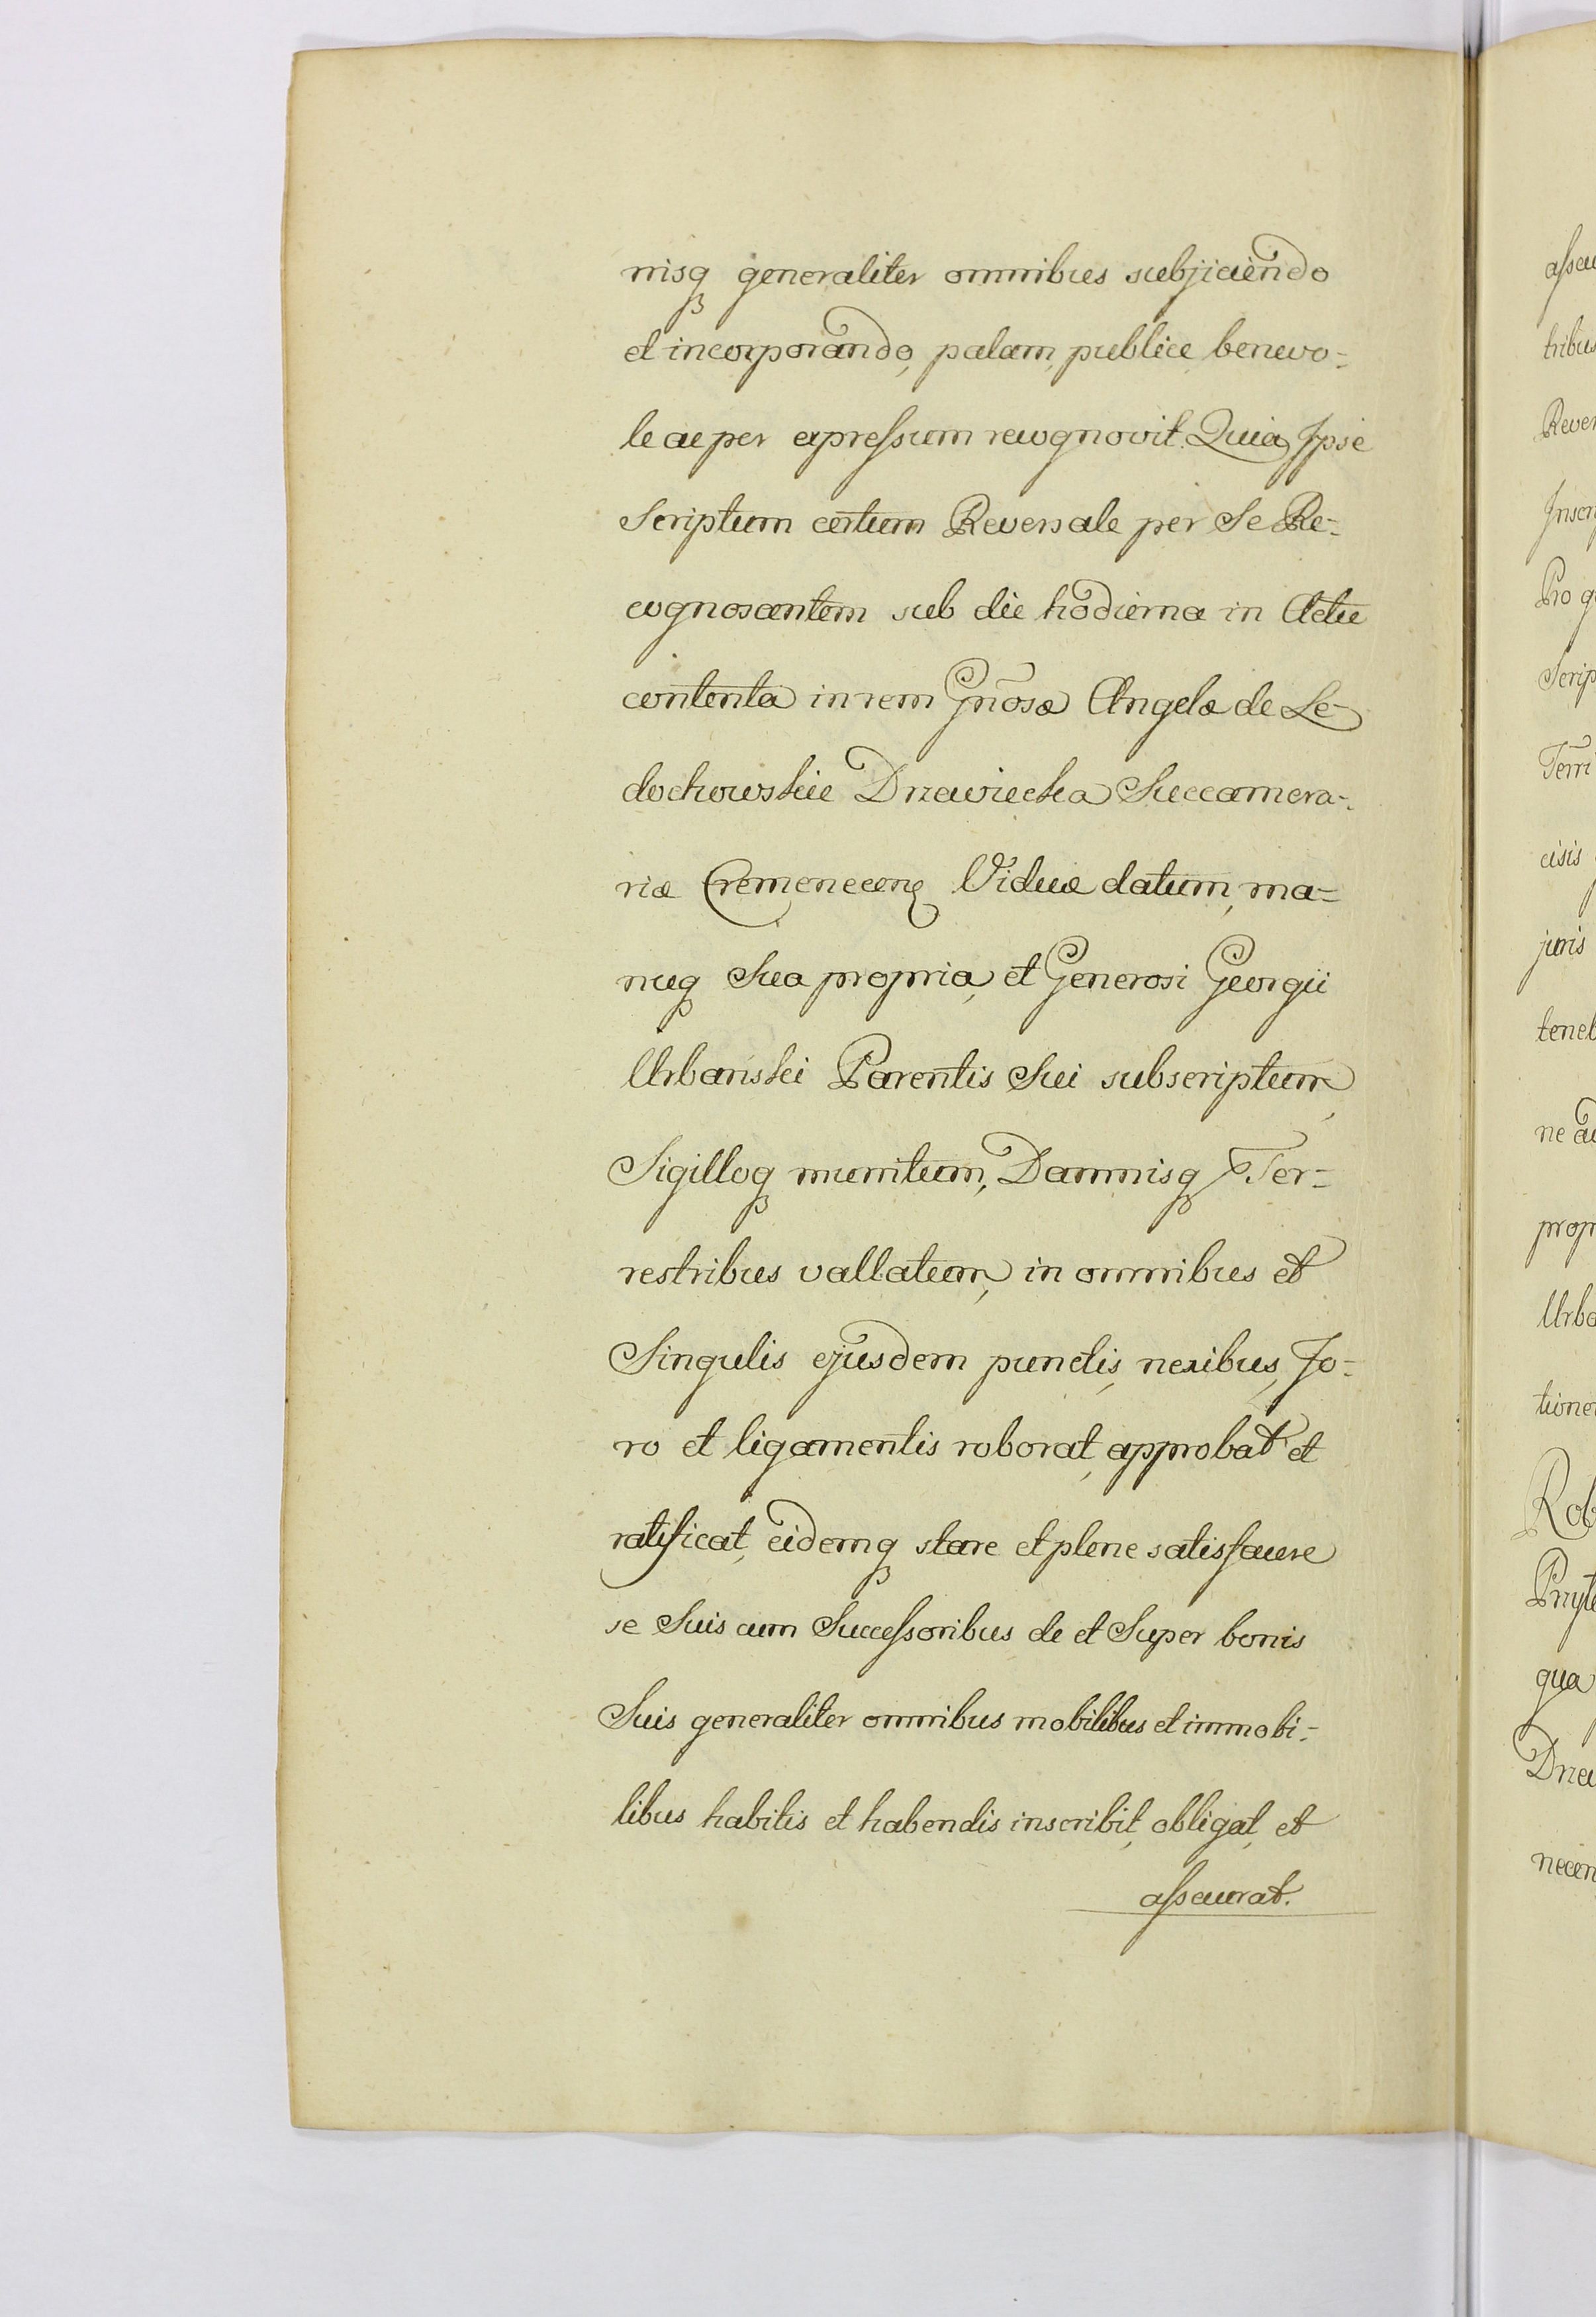 nisq generaliter omnibus subjiciendo
et incorporando, palam, publice, benevo-
le ac per expressum recognovit. Quia Ipse
Scriptum certum Reversale per Se Re-
cognoscentem sub die hodierna in Actu
contenta in rem Gnosæ Angelæ de Le-
dochowskie Drzewiecka Succamera-
riæ Cremenecen Viduæ datum, ma-
nuq Sua propria, et Generosi Georgii
Urbanski Parentis Sui subscriptum,
Sigilloq munitum, Damnisq Ter-
restribus vallatum, in omnibus et
Singulis ejusdem punctis, nexibus, fo-
ro et ligamentis roborat, approbat et
ratificat, eidemq stare et plene satisfacere
se Suis cum Successoribus de et Super bonis
Suis generaliter omnibus mobilibus et immobi-
libus habitis et habendis inscribit, obligat, et
assecurat.
tribus
Rever
Pro q
Scrip
Terri
cisis
juris
tene
prop
Urba
tione
Rob
Przyt
qua
necen